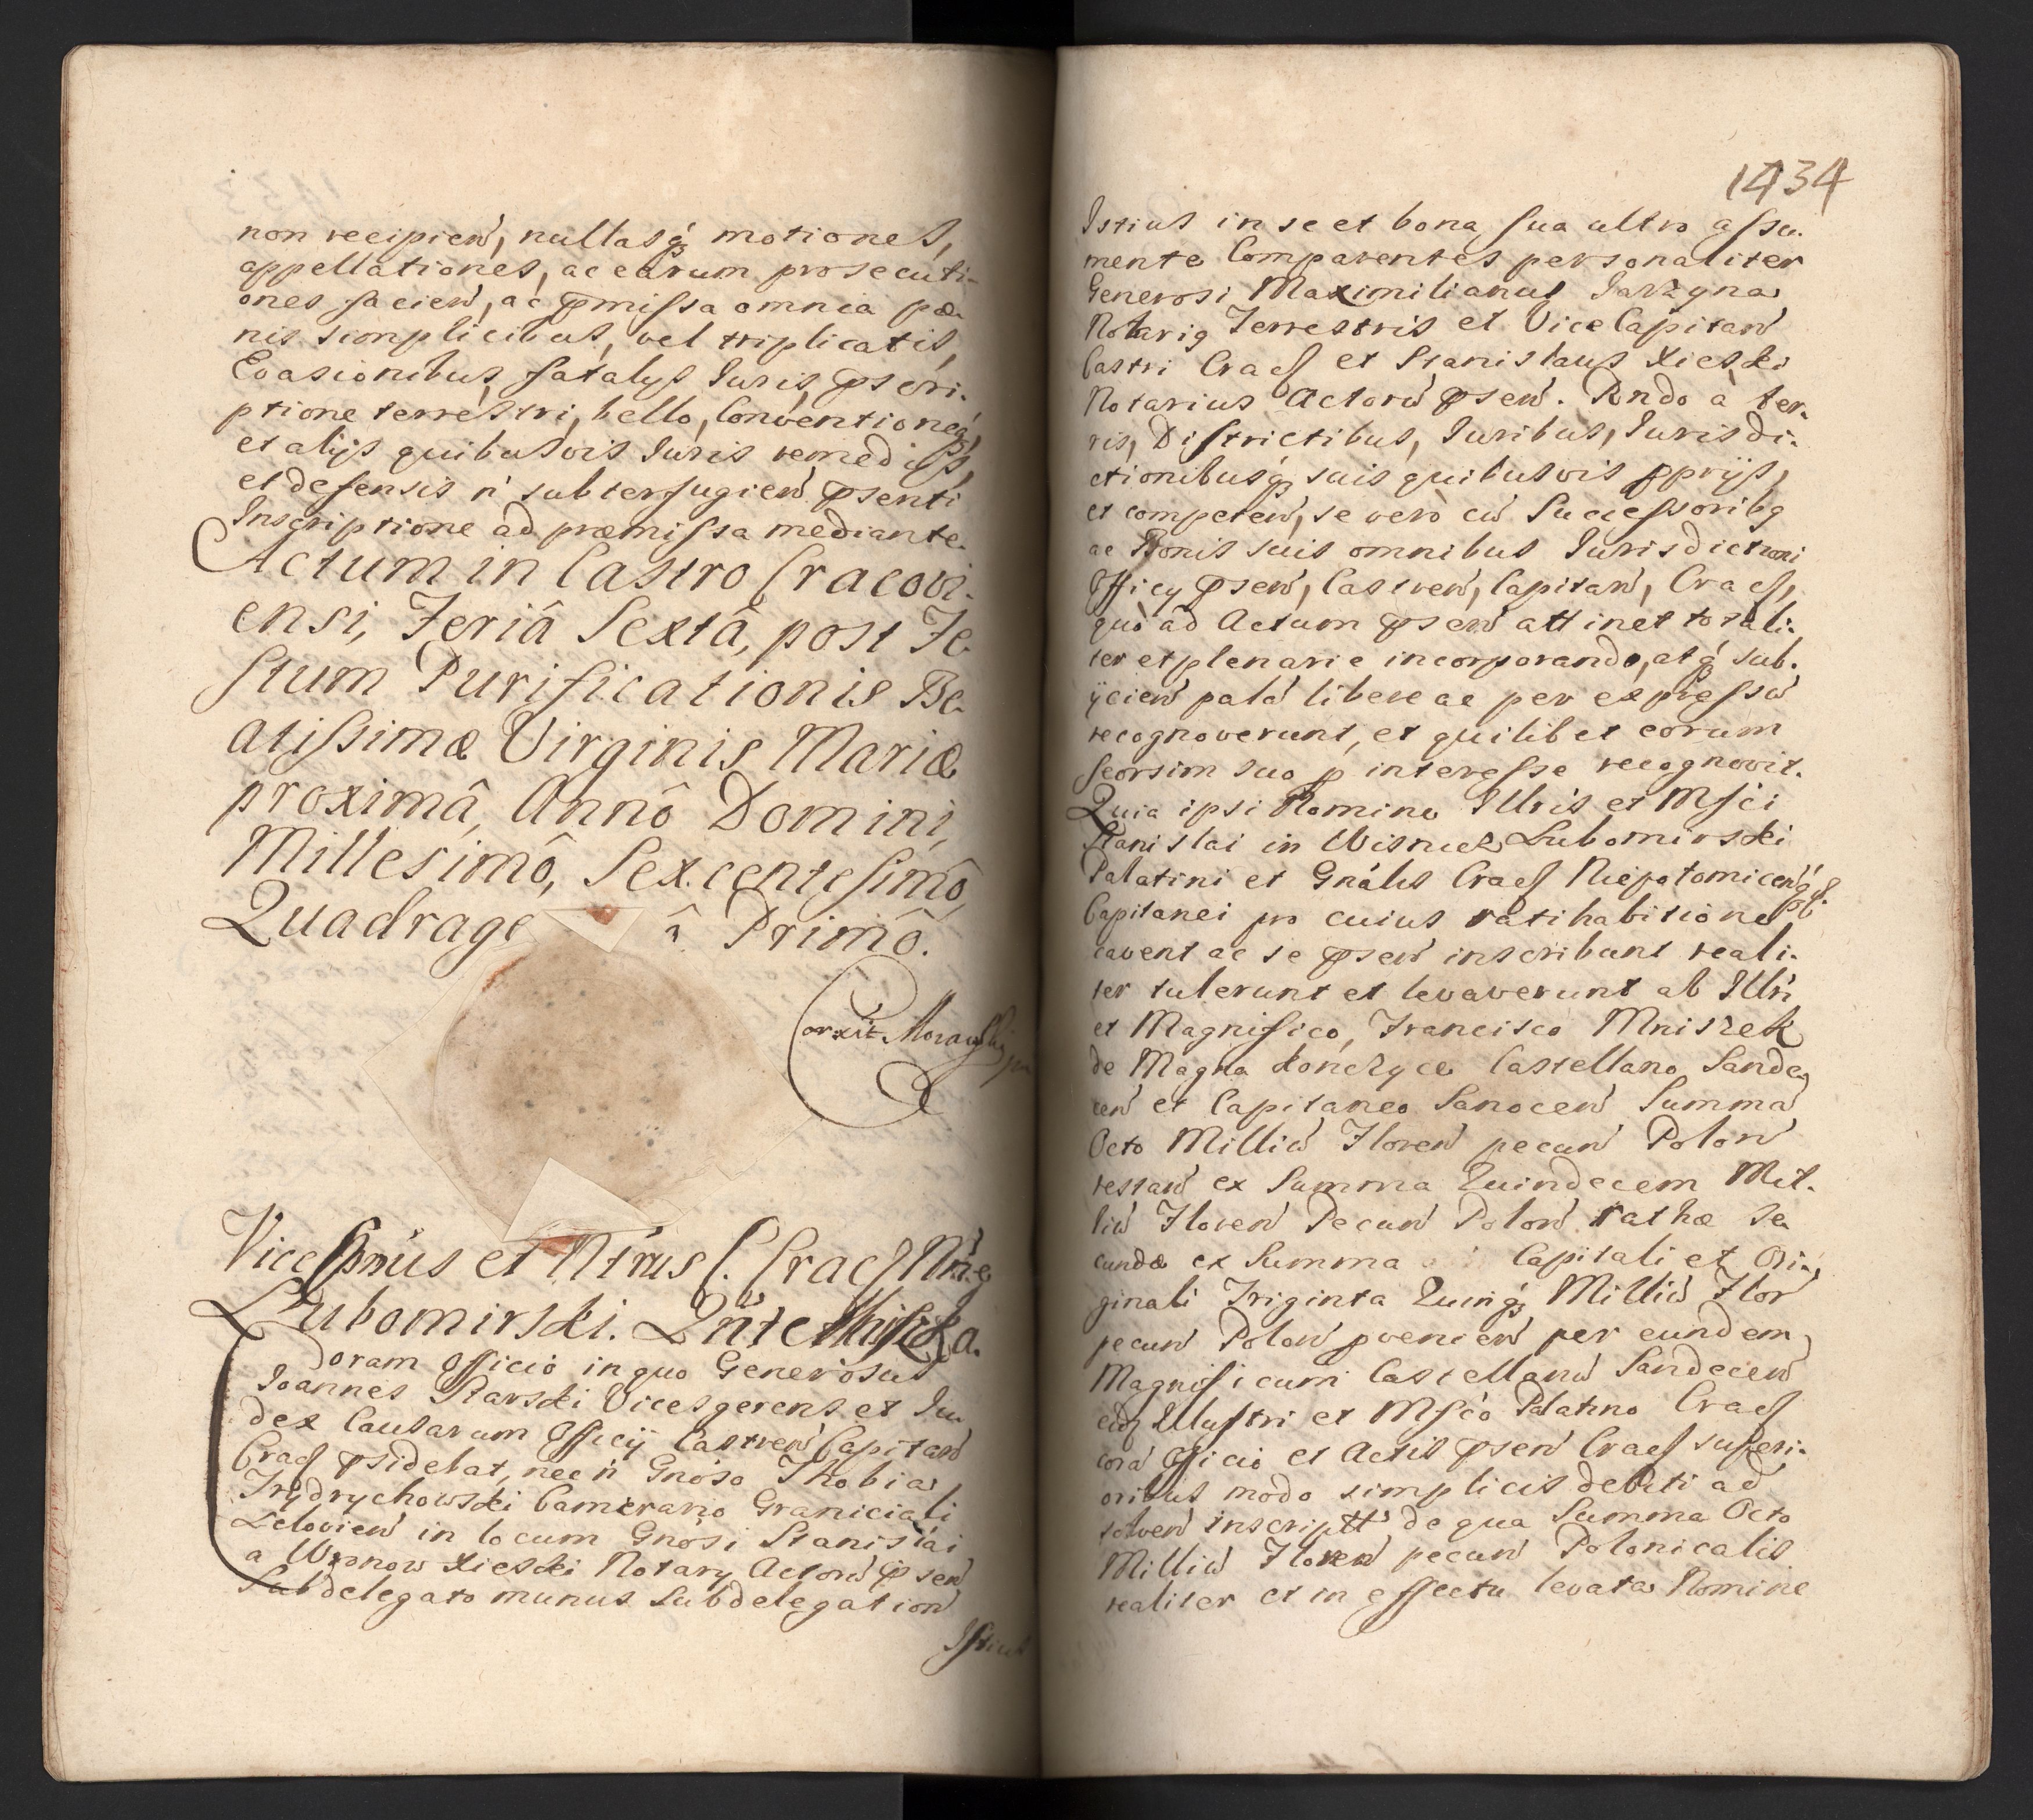 non recipień, nullasq́ꝫ motiones,
appellationes, ac earum prosecuti-
ones facień, ac p̄missa omnia pœ-
nis simplicibus, vel triplicatis,
Evasionibus, fatalys Iuris, p̄scri-
ptione terrestri, bello, Conventioneq́ꝫ,
et alijs quibusvis Iuris remedijs,
et defensis ń subterfugień p̄senti
Inscriptione ad præmissa mediante.
Actum in Castro Cracovi-
ensi, Feriâ Sextâ, post Fe-
stum Purificationis Be-
atissimæ Virginis Mariæ
proximâ, Annô Domini,
Millesimô, Sexcentesimô,
Quadrage ô Primô.
Corxit Morawski
Lubomirski.
Coram Officio in quo Generosus
Joannes Starski Vicesgerens et Iu-
dex Causarum Officij Castreń Capitań
Cracſ p̄sidebat, nec ń Gnóso Thobia
Frydrychowski Camerario Graniciali
Lelovień in locum Gnósi Stanisłai
a Wronow Xieski Notary Actorú p̄seń
Subdelegato munus Subdelegation
Istius
1434
Istius in se et bona sua ultro assu-
mente Comparentes personaliter
Generosi Maximilianus Jarzyna
Notariꝰ Terrestris et Vice Capitań
Castri Cracſ et Stanislaus Xieski
Notarius Actorú p̄seń. Rṅdo à ter-
ris, Districtibus, Iuribus, Iurisdi-
ctionibusq́ꝫ suis quibusvis p̄prijs,
et competeń, se vero cú Successoribꝰ
ac Bonis suis omnibus Iurisdictioni
Officy p̄seń, Castreń, Capitań, Cracſ,
quò ad Actum p̄seń attinet totali-
ter et plenarie incorporando, atq́ꝫ sub-
ÿcień palá libere ac per expressú
recognoverunt, et quilibet eorum
seorsim suo p̱ interesse recognovit.
Quia ipsi Nomine Illris et Mfci
Stanislai in Wisnicz Lubomirski
Palatini et Gnális Cracſ Niepotomiceńq́ꝫ
Capitanei pro cuius ratihabitione
cavent ac se p̄seń inscribunt reali-
ter tulerunt et levaverunt ab Illri
et Magnifico, Francisco Mniszek
de Magna Kończyce Castellano Sande-
ceń et Capitaneo Sanoceń Summá
Octo Millú Floreń pecuń Poloń
restań ex Summa Quindecem Mil-
liú Floreń Pecuń Poloń rathæ se-
cundæ ex Summa Capitali et Ori-
ginali Triginta Quinq́ꝫ Milliú Flor
pecuń Poloń p̱venień per eundem
Magnificum Castellanú Sandeceń
eid Illustri et Mfco Palatino Cracſ
corá Officio et Actis p̄seń Cracſ superi-
oribus modo simplicis debiti ad
solveń inscriptt de qua Summa Octo
Milliú Floreń pecuń Polonicalis
realiter et in effectu levata Nomine